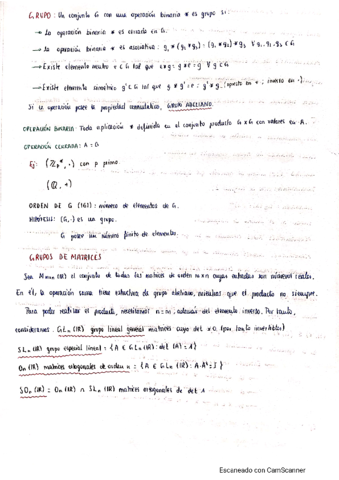 GRUPO: Un conjunto G con una operación binaria * es grupo si:
→ La operación binaria * es cerrada en G.
→ La operación binaria * es asociativa: g₁ * (g₂ * g₃) = (g₁ * g₂) * g₃ ∀ g₁, g₂, g₃ ∈ G
→ Existe elemento neutro e ∈ G tal que e * g = g * e = g ∀ g ∈ G
→ Existe elemento simétrico g' ∈ G tal que g * g' = e = g' * g (opuesto en +; inverso en ·)
Si la operación posee la propiedad conmutativa, GRUPO ABELIANO.
OPERACIÓN BINARIA Toda aplicación * definida en el conjunto producto G x G con valores en A.
OPERACIÓN CERRADA: A = G
Ej: (ℤp*, ·) con p primo
(ℚ, +)
ORDEN DE G (|G|): número de elementos de G.
HIPÓTESIS: (G, ·) es un grupo.
G posee un número finito de elementos.
GRUPOS DE MATRICES
Sea (ℝ) el conjunto de todas las matrices de orden m x n cuyas entradas son números reales.
En él, la operación suma tiene estructura de grupo abeliano, mientras que el producto no siempre.
Para poder realizar el producto, necesitamos n = m, además del elemento inverso. Por tanto,
consideramos GLn (ℝ) grupo lineal general matrices cuyo det ≠ 0 (por tanto invertibles)
SLn (ℝ) grupo especial lineal = {A ∈ GLn (ℝ) : det (A) = 1}
On (ℝ) matrices ortogonales de orden n = {A ∈ GLn (ℝ) : A · Aᵗ = I}
SOn (ℝ) = On (ℝ) ∩ SLn (ℝ) matrices ortogonales de det 1
Escaneado con CamScanner